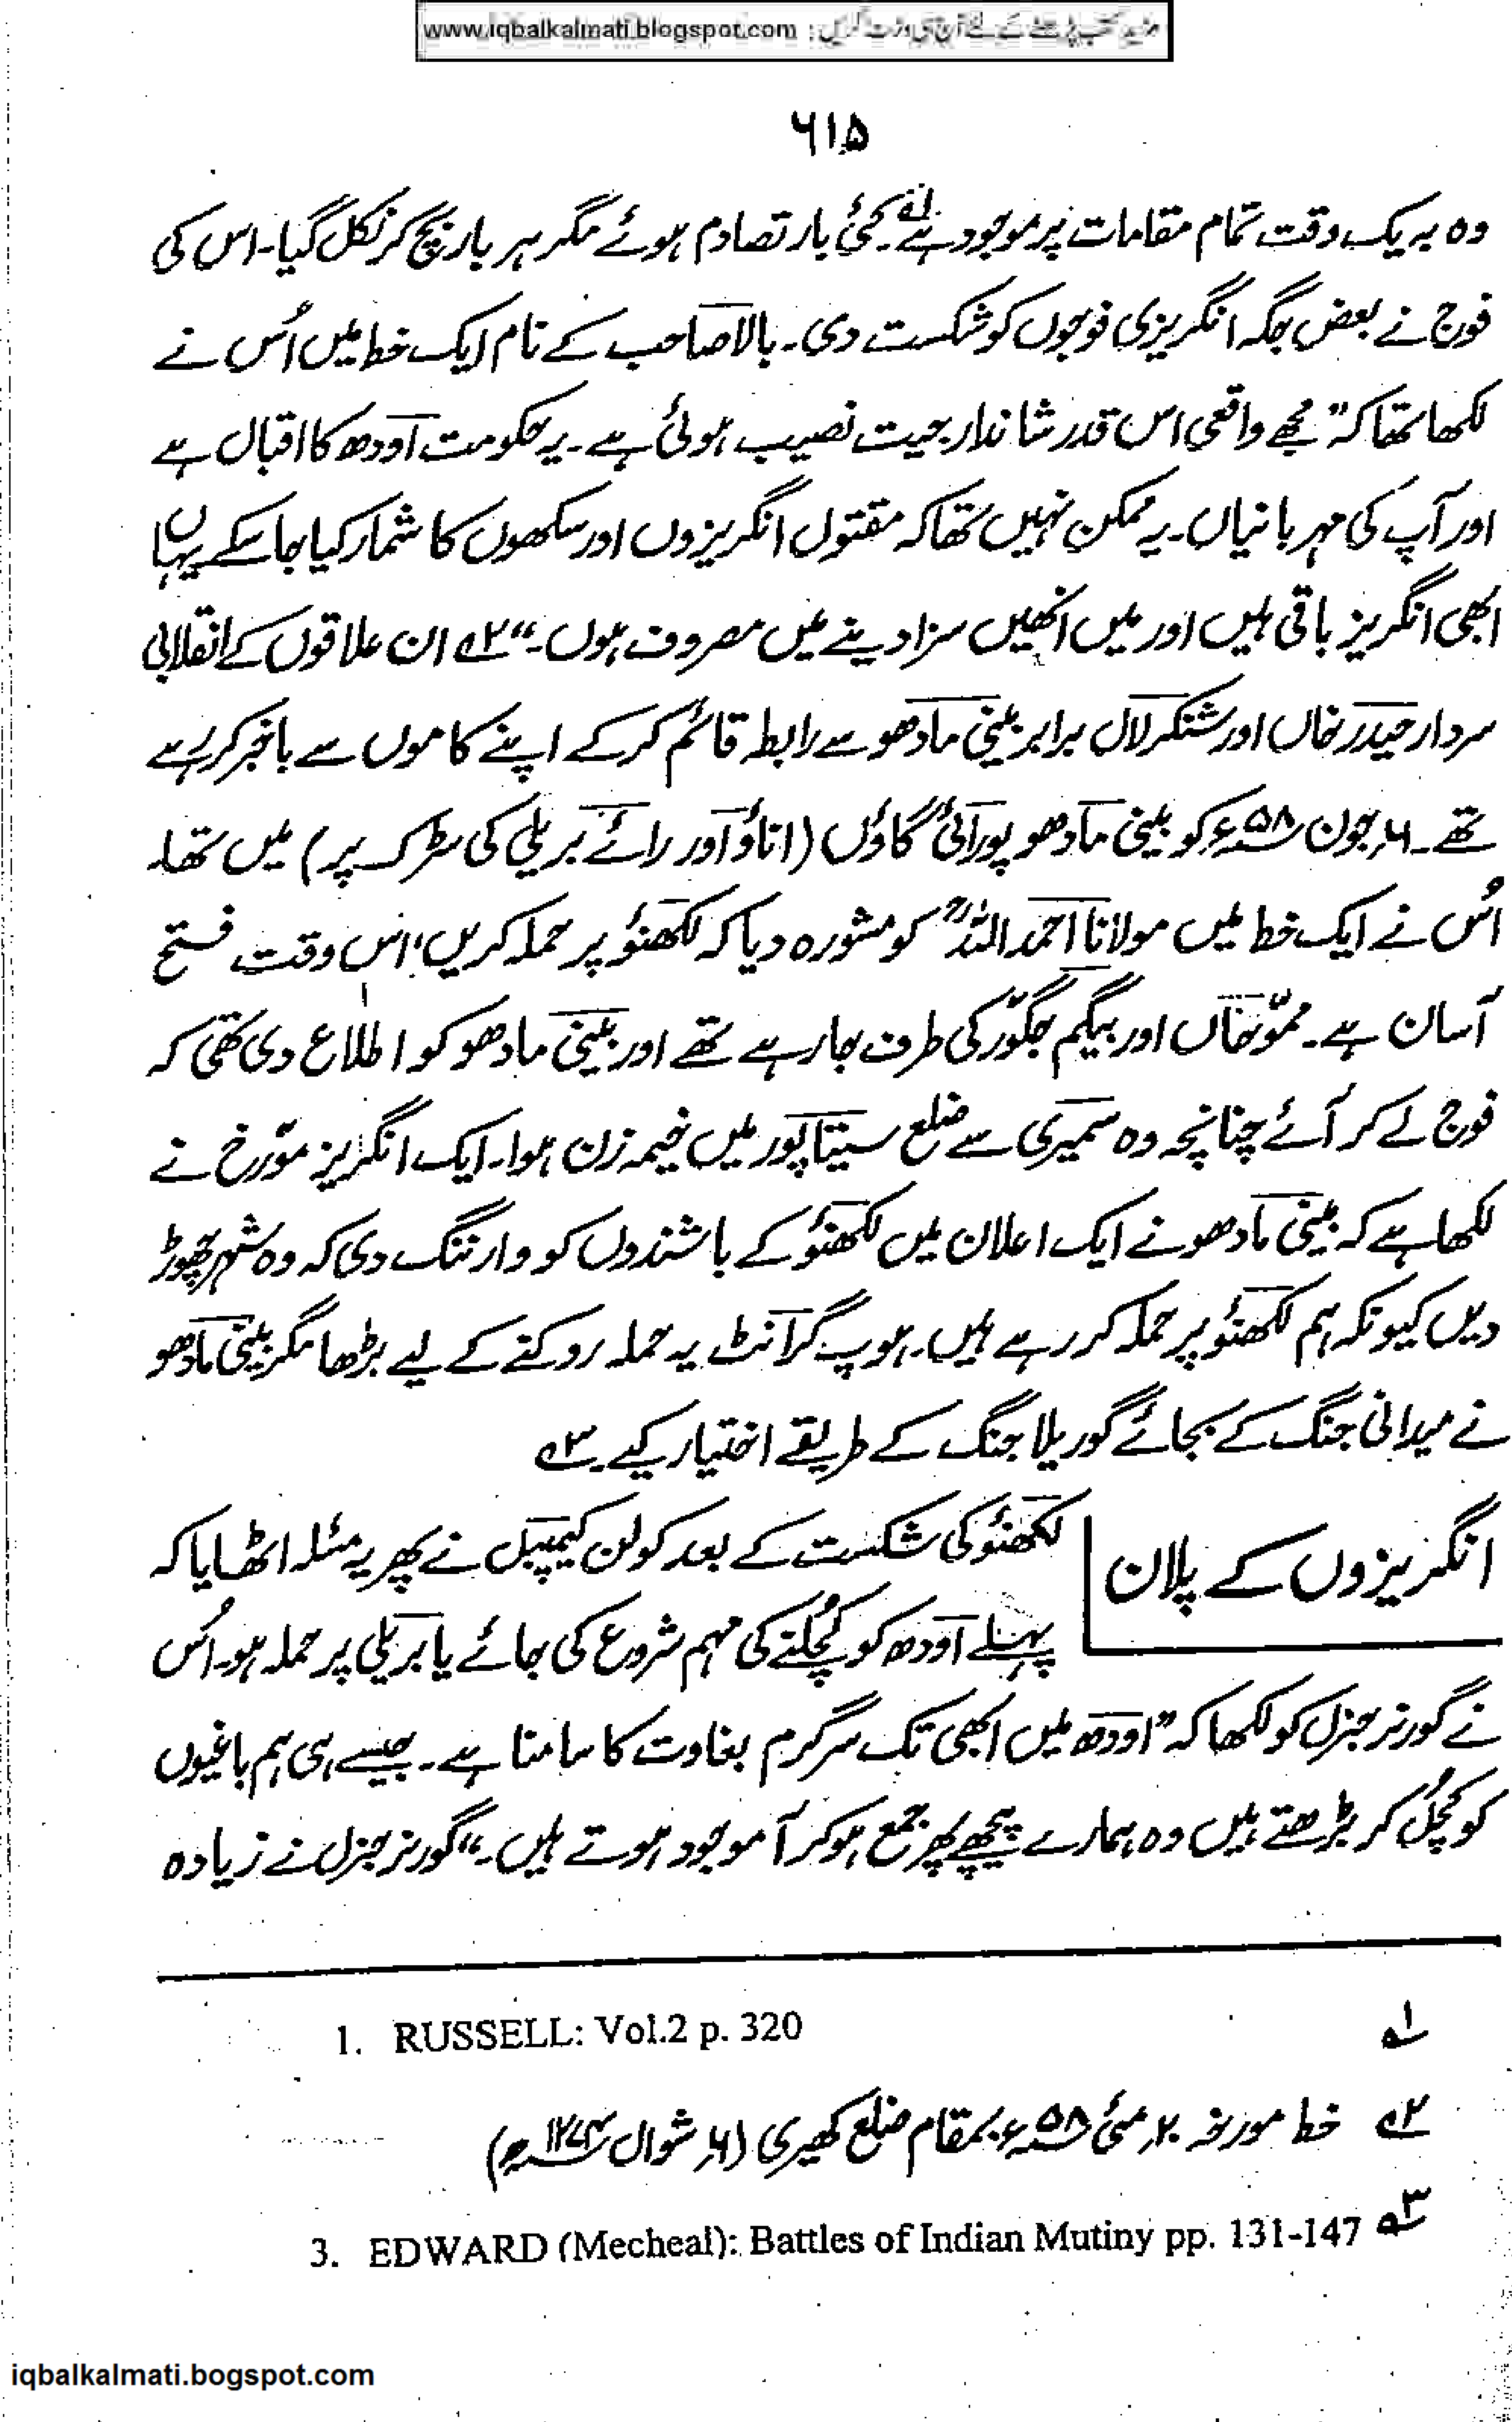 مزید کتب پڑھنے کے لئے آج ہی وزٹ کریں : www.iqbalkalmati.blogspot.com
۶۱۵
وہ بہ یک وقت تمام مقامات پر موجود ہے۔لہ کئی بار تصادم ہوئے مگر ہر بار بچ کر نکل گیا۔ اس کی
فوج نے بعض جگہ انگریزی فوجوں کو شکست دی۔ بالا صاحب کے نام ایک خط میں اُس نے
لکھا تھا کہ "مجھے واقعی اس قدر شاندار جیت نصیب ہوئی ہے۔ یہ حکومت اودھ کا اقبال ہے
اور آپ کی مہربانیاں۔ یہ ممکن نہیں تھا کہ مقتول انگریزوں اور سکھوں کا شمار کیا جا سکے یہاں
ابھی انگریز باقی ہیں اور میں انھیں سزا دینے میں مصروف ہوں۔" ۲ے ان علاقوں کے انقلابی
سردار حیدر خاں اور شنکر لال برابر بینی مادھو سے رابطہ قائم کرکے اپنے کاموں سے باخبر کر رہے
تھے۔ ۶؍ جون ۵۸ء کو بینی مادھو پورائی گاؤں (اناؤ اور رائے بریلی کی سڑک پر) میں تھا۔
اُس نے ایک خط میں مولانا احمد اللہؒ کو مشورہ دیا کہ لکھنؤ پر حملہ کریں، اس وقت فتح
آسان ہے۔ ممّو خاں اور بیگم جگوّر کی طرف جا رہے تھے اور بینی مادھو کو اطلاع دی تھی کہ
فوج لے کر آئے چنانچہ وہ سمیری سے ضلع سیتاپور میں خیمہ زن ہوا۔ ایک انگریز مورّخ نے
لکھا ہے کہ بینی مادھو نے ایک اعلان میں لکھنؤ کے باشندوں کو وارننگ دی کہ وہ شہر چھوڑ
دیں کیونکہ ہم لکھنؤ پر حملہ کر رہے ہیں۔ ہوپ گرانٹ یہ حملہ روکنے کے لیے بڑھا مگر بینی مادھو
نے میدانی جنگ کے بجائے گوریلا جنگ کے طریقے اختیار کیے۔ ۳ے
انگریزوں کے پلان
لکھنؤ کی شکست کے بعد کولن کیمپبل نے پھر یہ مسئلہ اٹھایا کہ
پہلے اودھ کو کُچلنے کی مہم شروع کی جائے یا بریلی پر حملہ ہو۔ اُس
نے گورنر جنرل کو لکھا کہ "اودھ میں ابھی تک سرگرم بغاوت کا سامنا ہے۔ جیسے ہی ہم باغیوں
کو کچُل کر بڑھتے ہیں وہ ہمارے پیچھے پھر جمع ہو کر آ موجود ہوتے ہیں۔" گورنر جنرل نے زیادہ
1. RUSSELL: Vol.2 p. 320 ۱ے
۲ے خط مورخہ ۲۰؍ مئی ۵۸ء بمقام ضلع کھیری (۶؍ شوال ۱۲۷۴ھ)
3. EDWARD (Mecheal): Battles of Indian Mutiny pp. 131-147 ۳ے
iqbalkalmati.bogspot.com